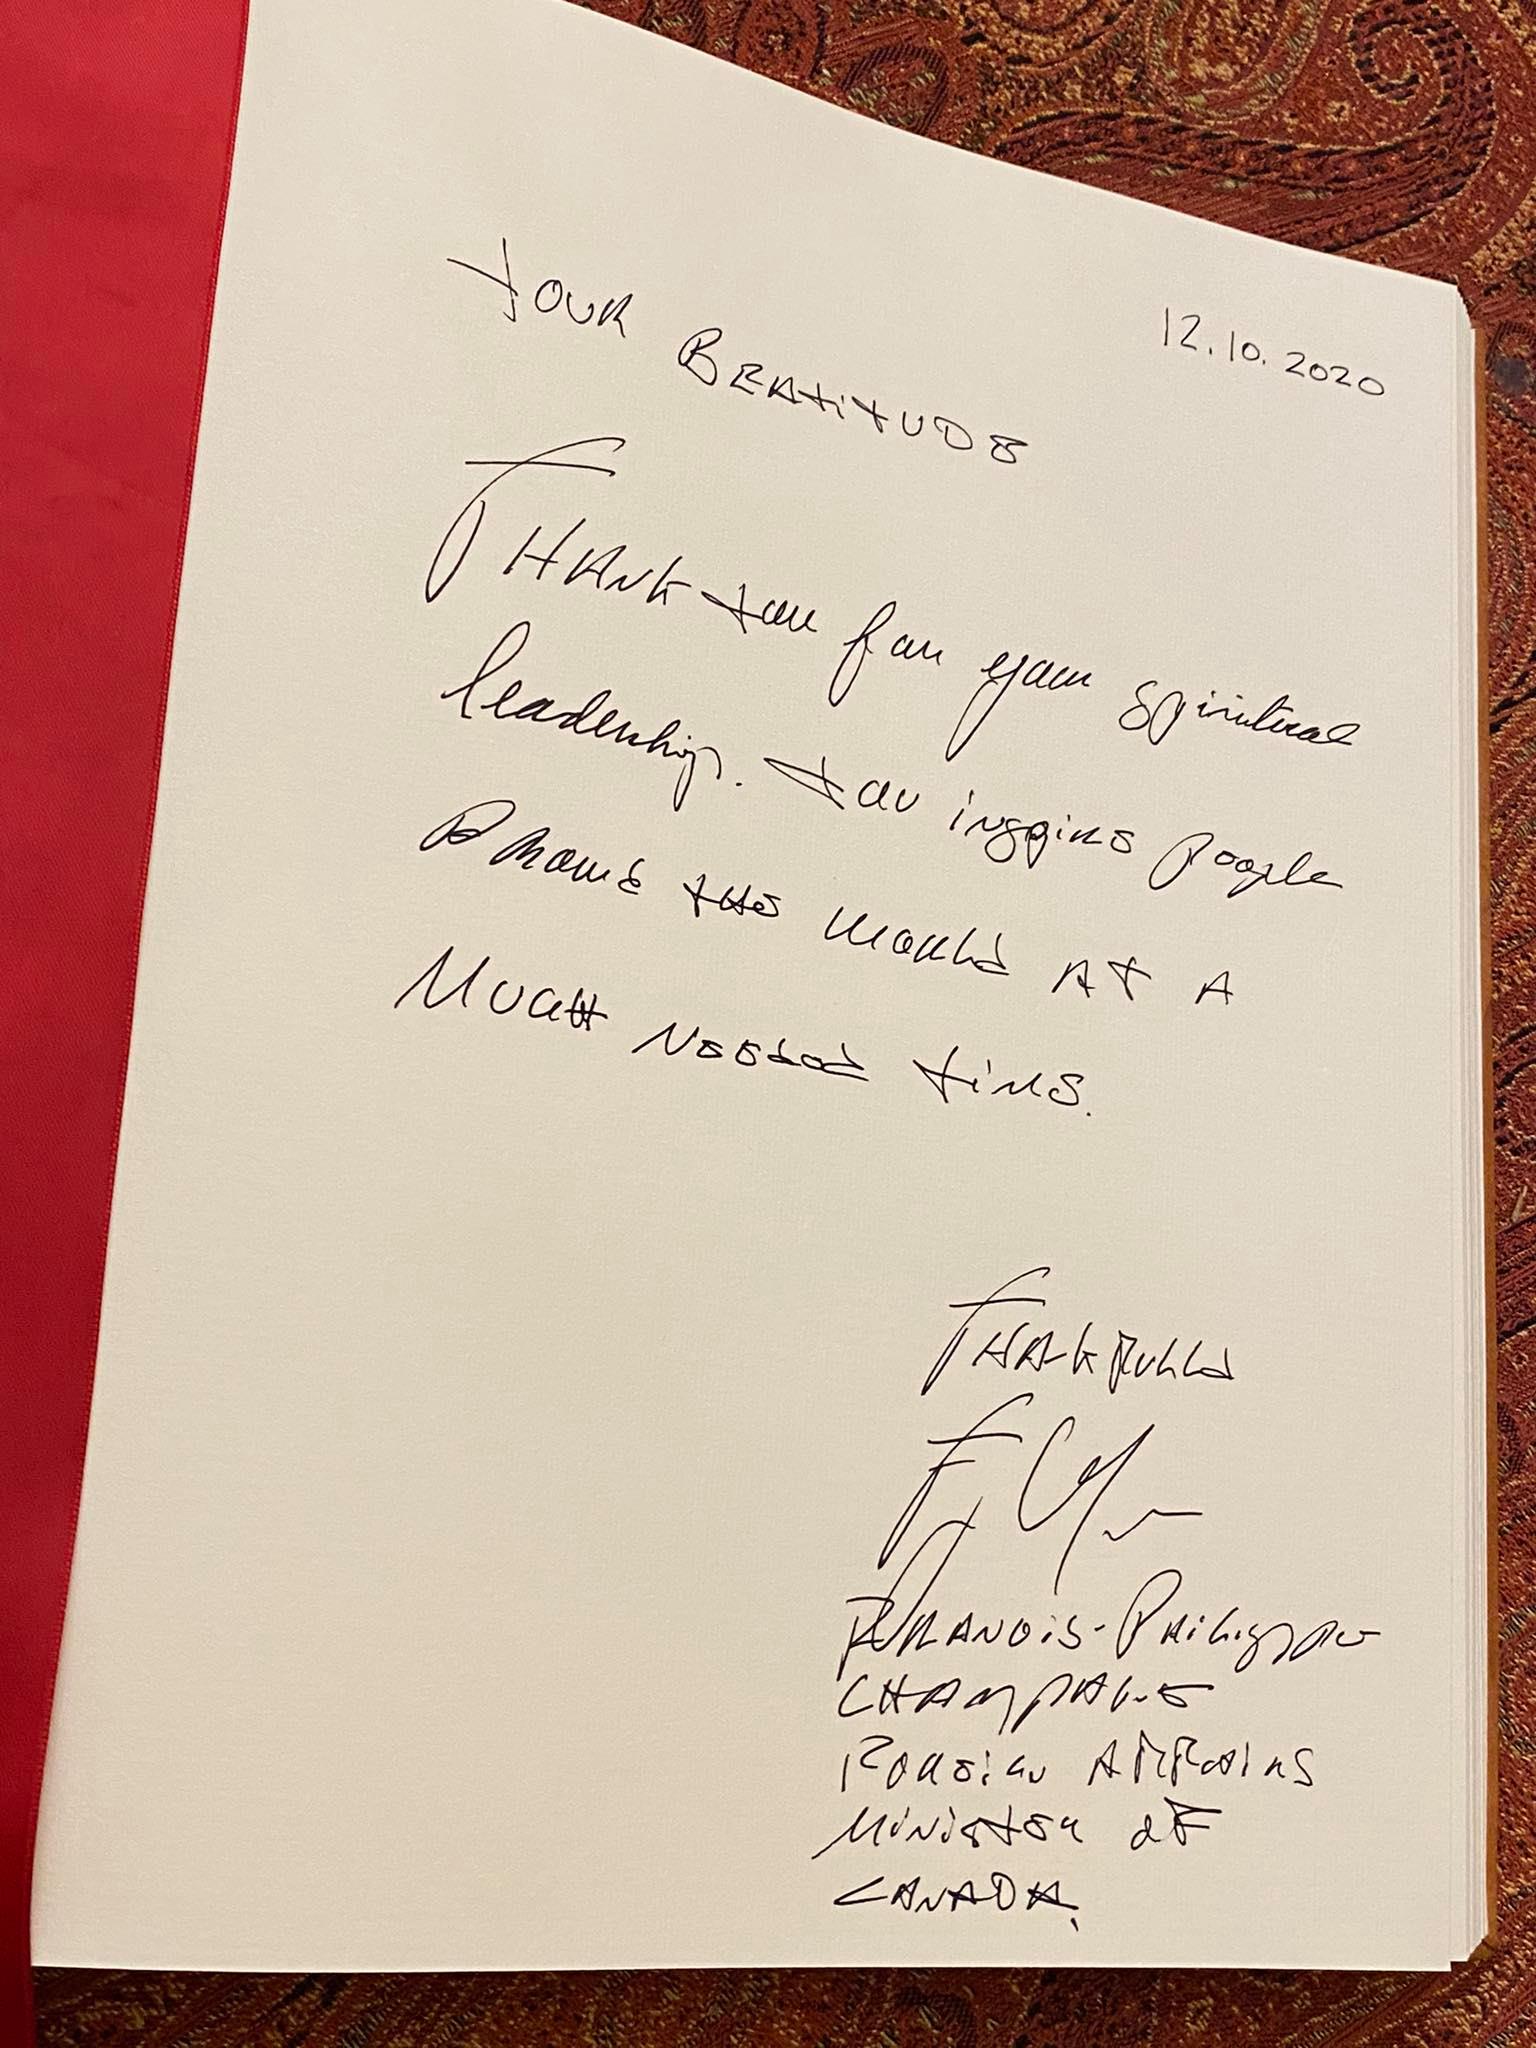 12.10.2020
Your Beatitude
Thank you for your spiritual
leadership. You inspire people
around the world at a
much needed time.
Thankfully
François-Philippe
Champagne
Foreign Affairs
Minister of
Canada.